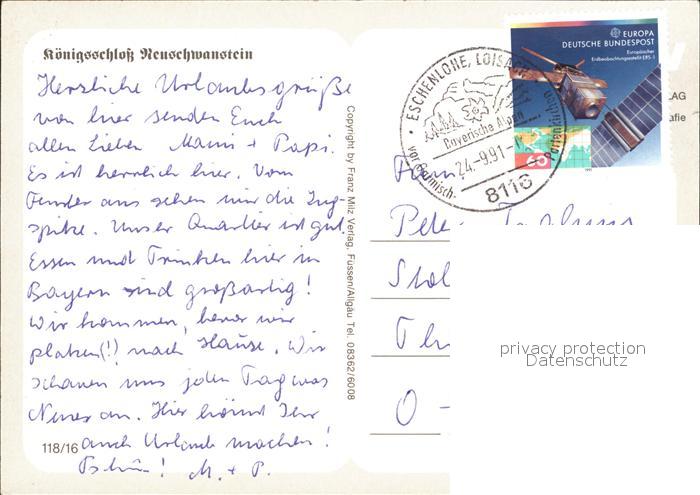 Königsschloß Neuschwanstein
Herzliche Urlaubsgrüße
von hier senden Euch
allen Lieben Mami + Papi.
Es ist herrlich hier. Vom
Fenster aus sehen wir die Zug-
spitze. Unser Quartier ist gut.
Essen und Trinken hier in
Bayern sind großartig!
Wir kommen, bevor wir
platzen(!) nach Hause. Wir
schauen uns jeden Tag was
Neues an. Hier könnt Ihr
auch Urlaub machen!
M. + P.
118/16
Copyright by Franz Milz Verlag, Füssen/Allgäu Tel. 08362/6008
ESCHENLOHE, LOISACH
Bayerische Alpen
24.-9.91-1
vor Garmisch-Partenkirchen
8116
EUROPA
DEUTSCHE BUNDESPOST
Europäischer
Erdbeobachtungssatellit ERS-1
60
1991
AG
afie
Fam
Pete
O -
privacy protection
Datenschutz